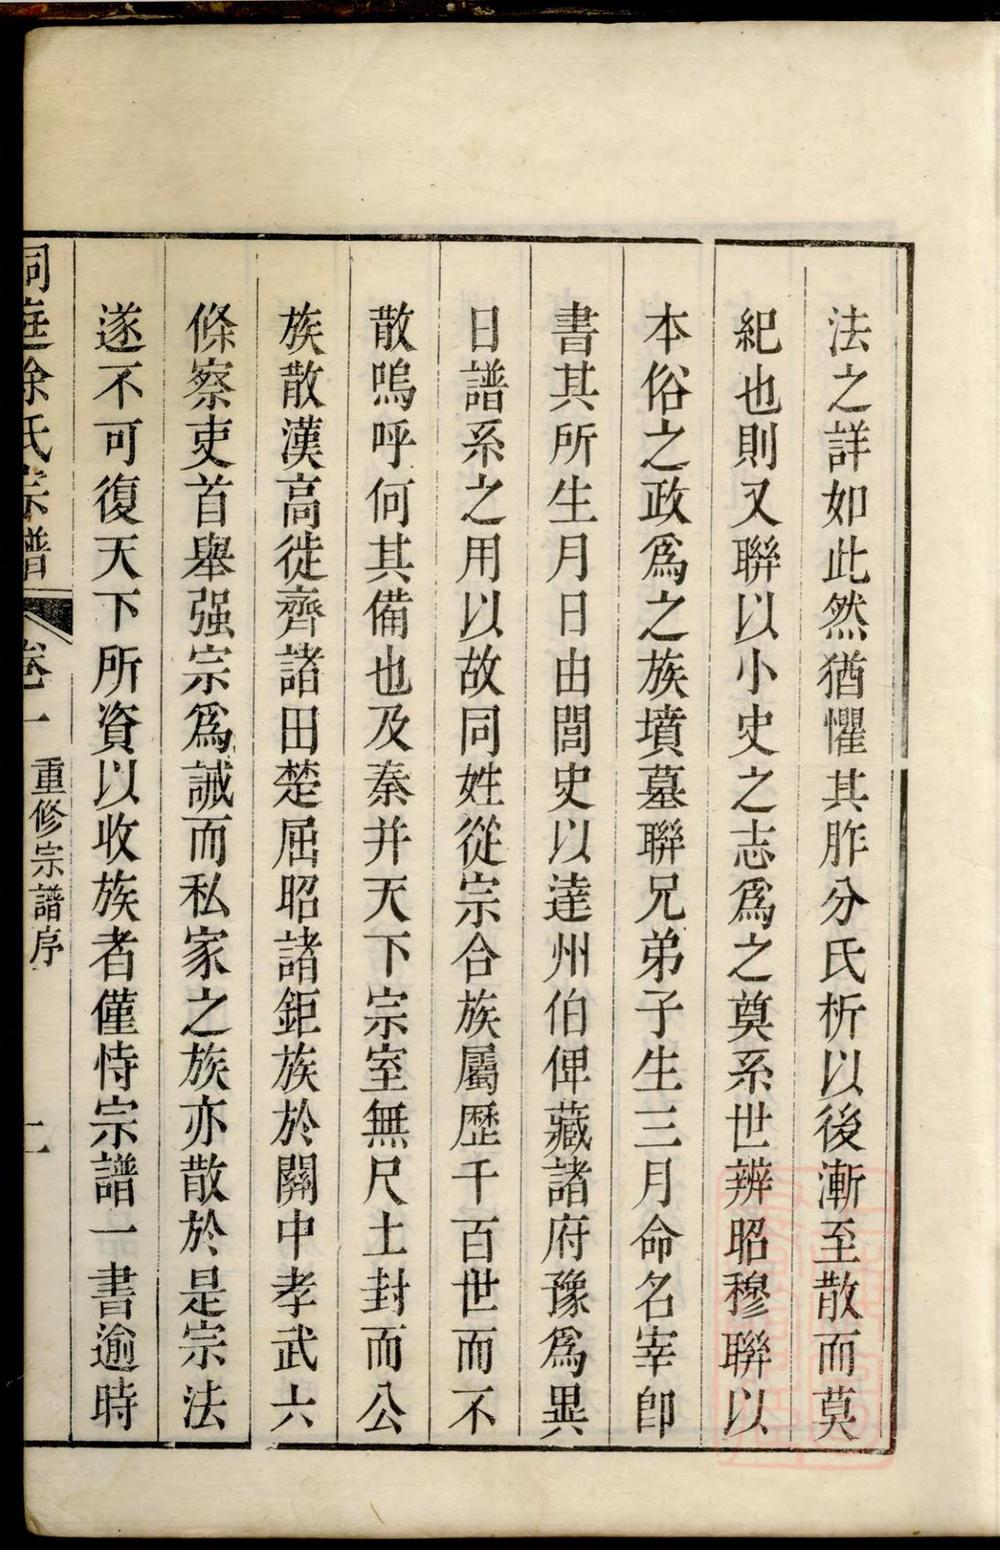 法之詳如此然猶懼其胙分氏析以後漸至散而莫
紀也則又聯以小史之志爲之奠系世辨昭穆聯以
本俗之政爲之族墳墓聯兄弟子生三月命名宰卽
書其所生月日由閭史以達州伯俾藏諸府豫爲異
日譜系之用以故同姓從宗合族屬歷千百世而不
散嗚呼何其備也及秦并天下宗室無尺土封而公
族散漢高徙齊諸田楚屈昭諸鉅族於關中孝武六
條察吏首舉强宗爲誡而私家之族亦散於是宗法
遂不可復天下所資以收族者僅恃宗譜一書逾時
洞庭徐氏宗譜 卷一 重修宗譜序